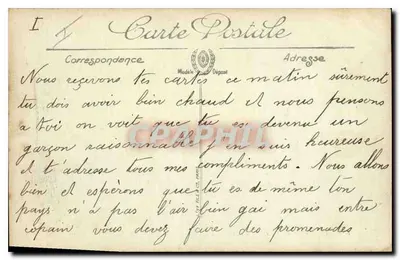 I I
Carte Postale
Correspondance
Adresse
Modèle Déposé
Nous reçevons tes cartes ce matin sûrement
tu dois avoir bien chaud et nous pensons
a toi on voit que tu es devenu un
garçon raisonnable j'en suis heureuse
et t'adresse tous mes compliments. Nous allons
bien et esperons que tu es de même ton
pays n a pas l'air bien gai mais entre
copain vous devez faire des promenades
CPAPHIL